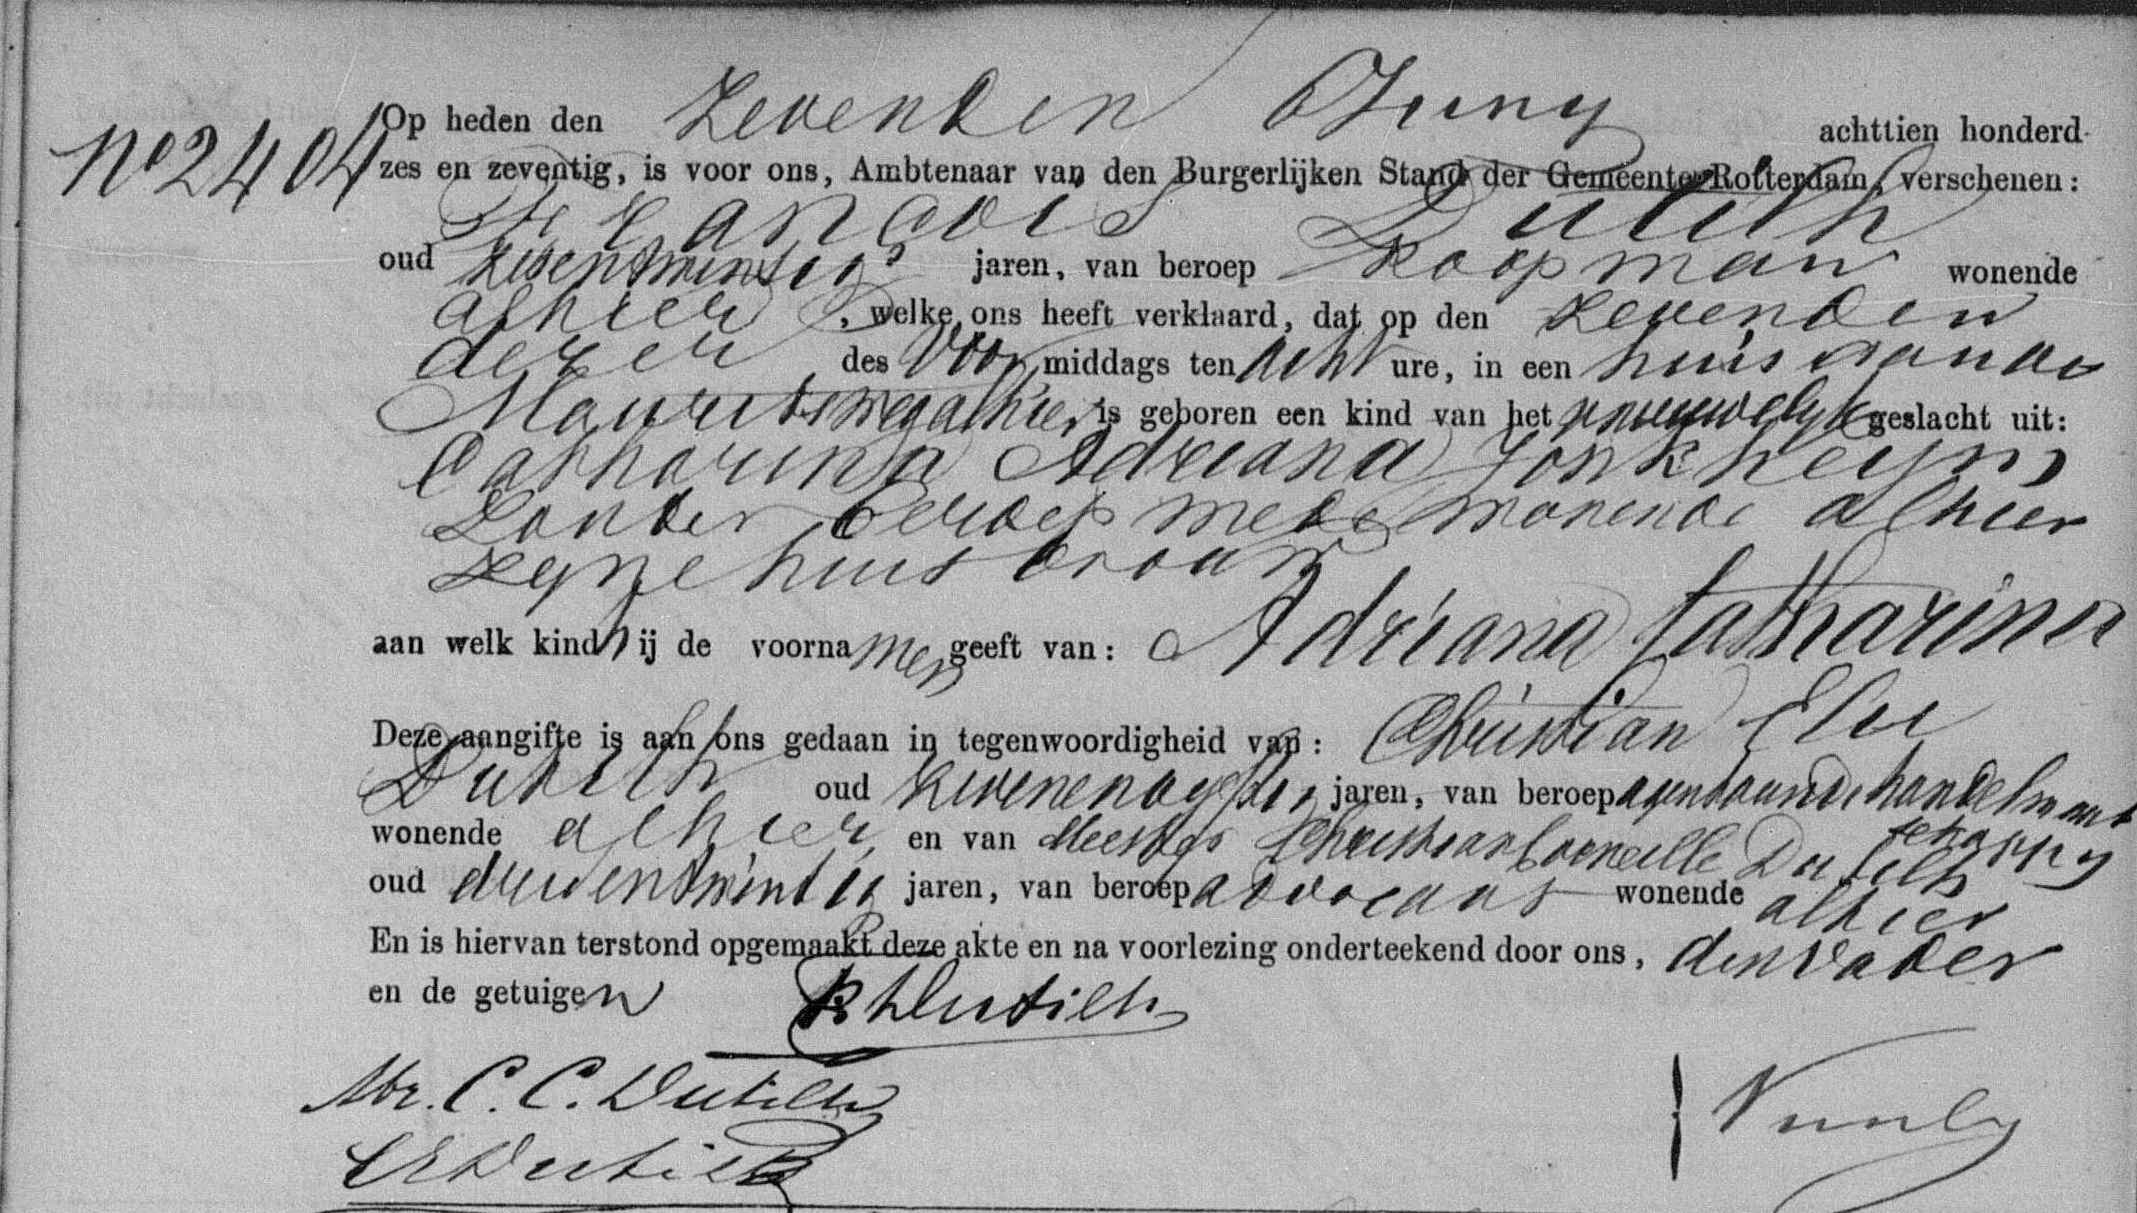 No 2404
Op heden den Zevenden Juny achttien honderd
zes en zeventig, is voor ons, Ambtenaar van den Burgerlijken Stand der Gemeente Rotterdam, verschenen:
François Dutilh
oud zesentwintig jaren, van beroep Koopman wonende
alhier, welke ons heeft verklaard, dat op den zevenden
dezer des voormiddags ten acht ure, in een huis aan de
Mauritsweg alhier is geboren een kind van het vrouwelijk geslacht uit:
Catharina Adriana Jonkheijm
zonder beroep mede wonende alhier
zijne huisvrouw
aan welk kind hij de voornamen geeft van: Adriana Catharina
Deze aangifte is aan ons gedaan in tegenwoordigheid van: Christian Elie
Dutilh oud zevenenvyftig jaren, van beroep agent van de handelmaat
schappy
wonende alhier en van Meester Christiaan Corneille Dutilh
oud drieentwintig jaren, van beroep advocaat wonende alhier
En is hiervan terstond opgemaakt deze akte en na voorlezing onderteekend door ons, den vader
en de getuigen Dutilh
Mr. C. C. Dutilh
CEDutilh